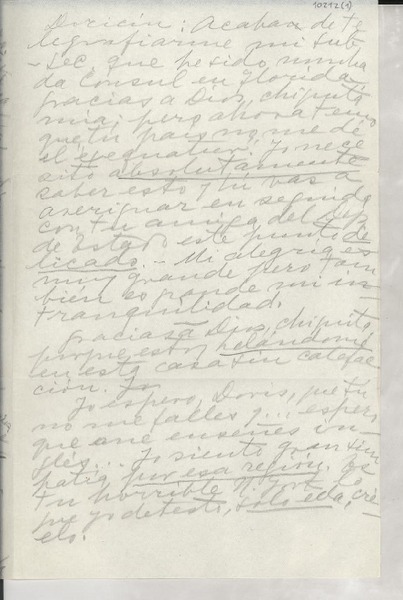 10212(1)
Doricín: Acaban de te
legrafiarme mi Sub
-sec, que he sido nombra
da Consul en Florida.
Gracias a Dios, chiquita
mia; pero ahora temo
que tu país no me dé
el exequatur. Yo nece
sito absolutamente
saber esto y tú vas a
averiguar en seguida
con tu amiga del Dep
de Estado este punto de
licado. - Mi alegría es
muy grande pero tam
bien es grande mi in
tranquilidad.
Gracias a Dios, chiquita,
porque estoy helandome
en esta casa sin calefac
ción. Yo
Yo espero, Doris, que tú
no me falles y... espero
que me enseñes in
glés... Yo siento gran sim
patía por esa región. Es
tu horrible N. York lo
que yo detesto, sólo eso, cré
elo.